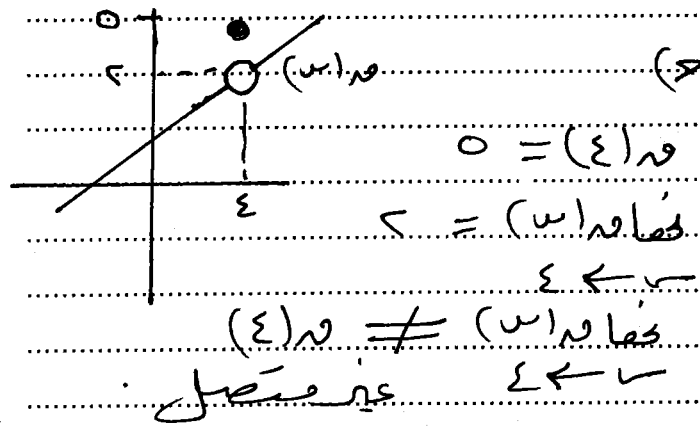 ٥
٢
ق(س)
ج)
٤
ق(٤) = ٥
نهـا ق(س) = ٢
س ← ٤
نهـا ق(س) ≠ ق(٤)
س ← ٤
غير متصل .